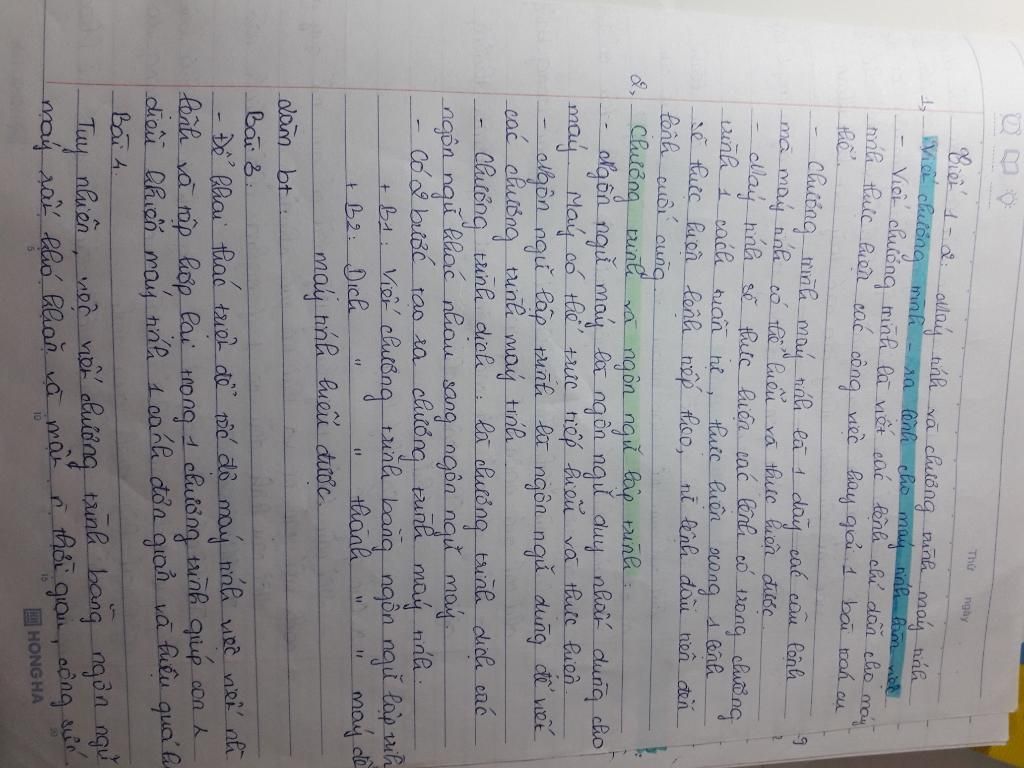 Thứ
ngày
Tiết 1 - 2. Máy tính và chương trình máy tính
1, Viết chương trình ra lệnh cho máy tính làm việc
- Viết chương trình là viết các lệnh chỉ dẫn cho máy
tính thực hiện các công việc hay giải 1 bài toán cụ
thể.
- Chương trình máy tính là 1 dãy các câu lệnh
mà máy tính có thể hiểu và thực hiện được.
- Máy tính sẽ thực hiện các lệnh có trong chương
trình 1 cách tuần tự, thực hiện xong 1 lệnh
sẽ thực hiện lệnh tiếp theo, từ lệnh đầu tiên đến
lệnh cuối cùng
2, Chương trình và ngôn ngữ lập trình.
- Ngôn ngữ máy là ngôn ngữ duy nhất dùng cho
máy. Máy có thể trực tiếp hiểu và thực hiện.
- Ngôn ngữ lập trình là ngôn ngữ dùng để viết
các chương trình máy tính
- Chương trình dịch: là chương trình dịch các
ngôn ngữ khác nhau sang ngôn ngữ máy.
- Có 2 bước tạo ra chương trình máy tính.
+ B1: Viết chương trình bằng ngôn ngữ lập trình
+ B2: Dịch " " thành " " máy để
máy tính hiểu được
Làm bt.
Bài 3:
- Để khai thác triệt để tốc độ máy tính việc viết
lệnh và tập hợp lại trong 1 chương trình giúp con
điều khiển máy tính 1 cách đơn giản và hiệu quả
Bài 4.
Tuy nhiên, việc viết chương trình bằng ngôn ngữ
máy rất khó khăn và mất thời gian, công sức
5
10
15
20
HONG HA